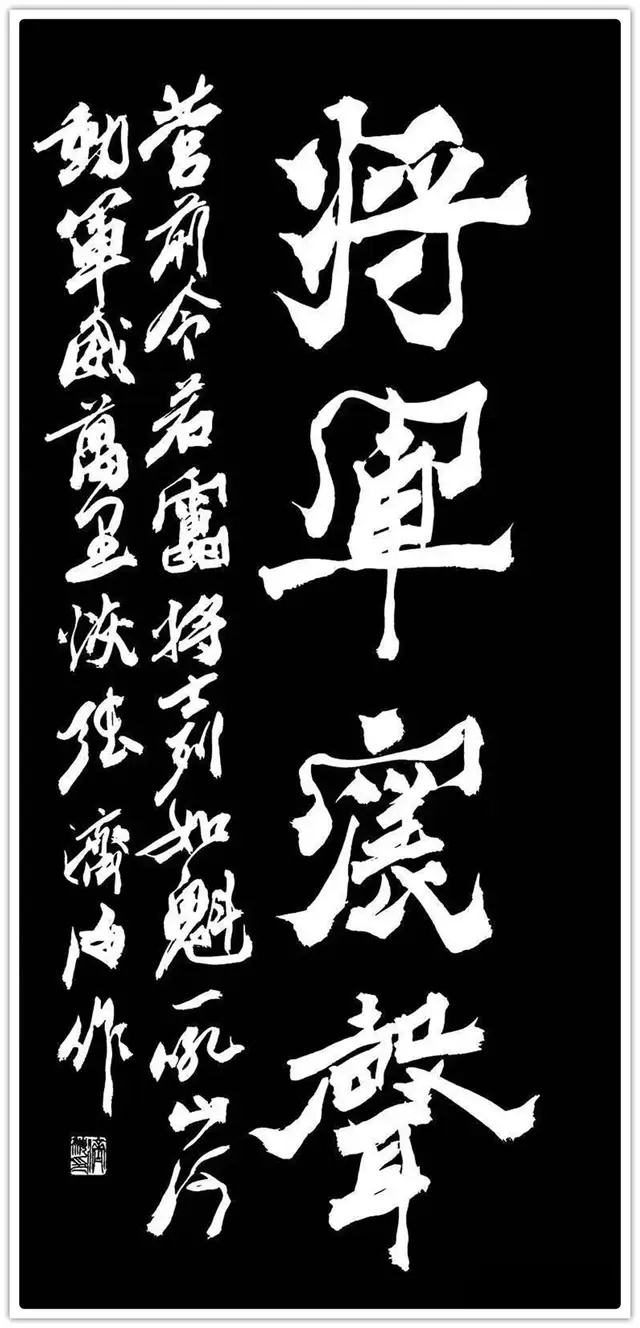 将軍聲
营前令若雷将士列如魁一吼山河
動軍威萬里恢张濟海作